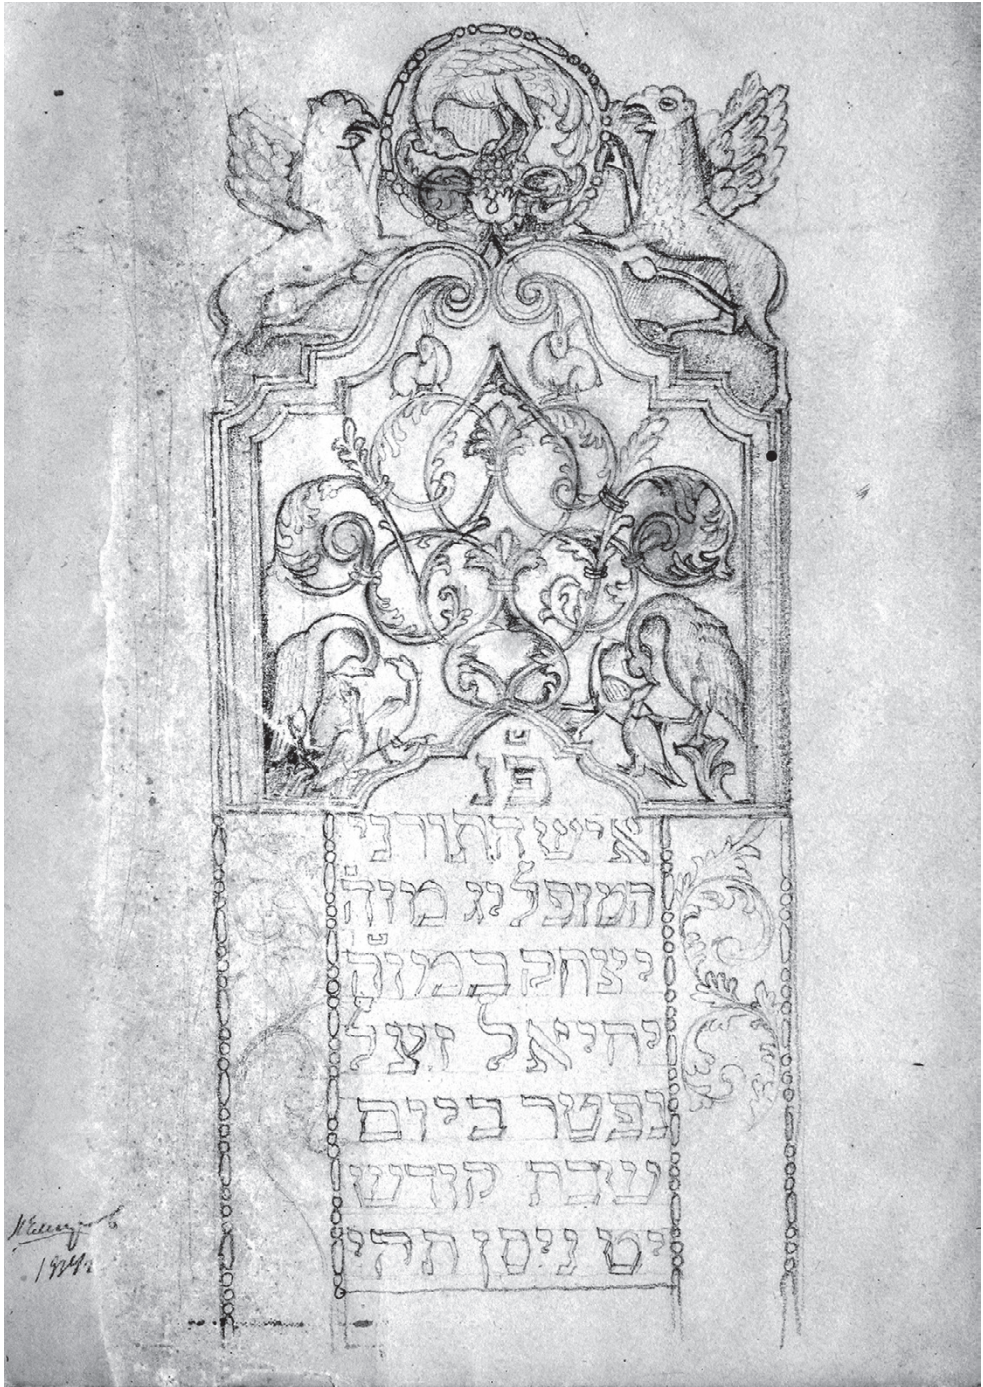 פנ
איש התורני
המופליג מוה
יצחק במוה
יחיאל זצל
נפטר ביום
שבת קודש
יט ניסן תקי